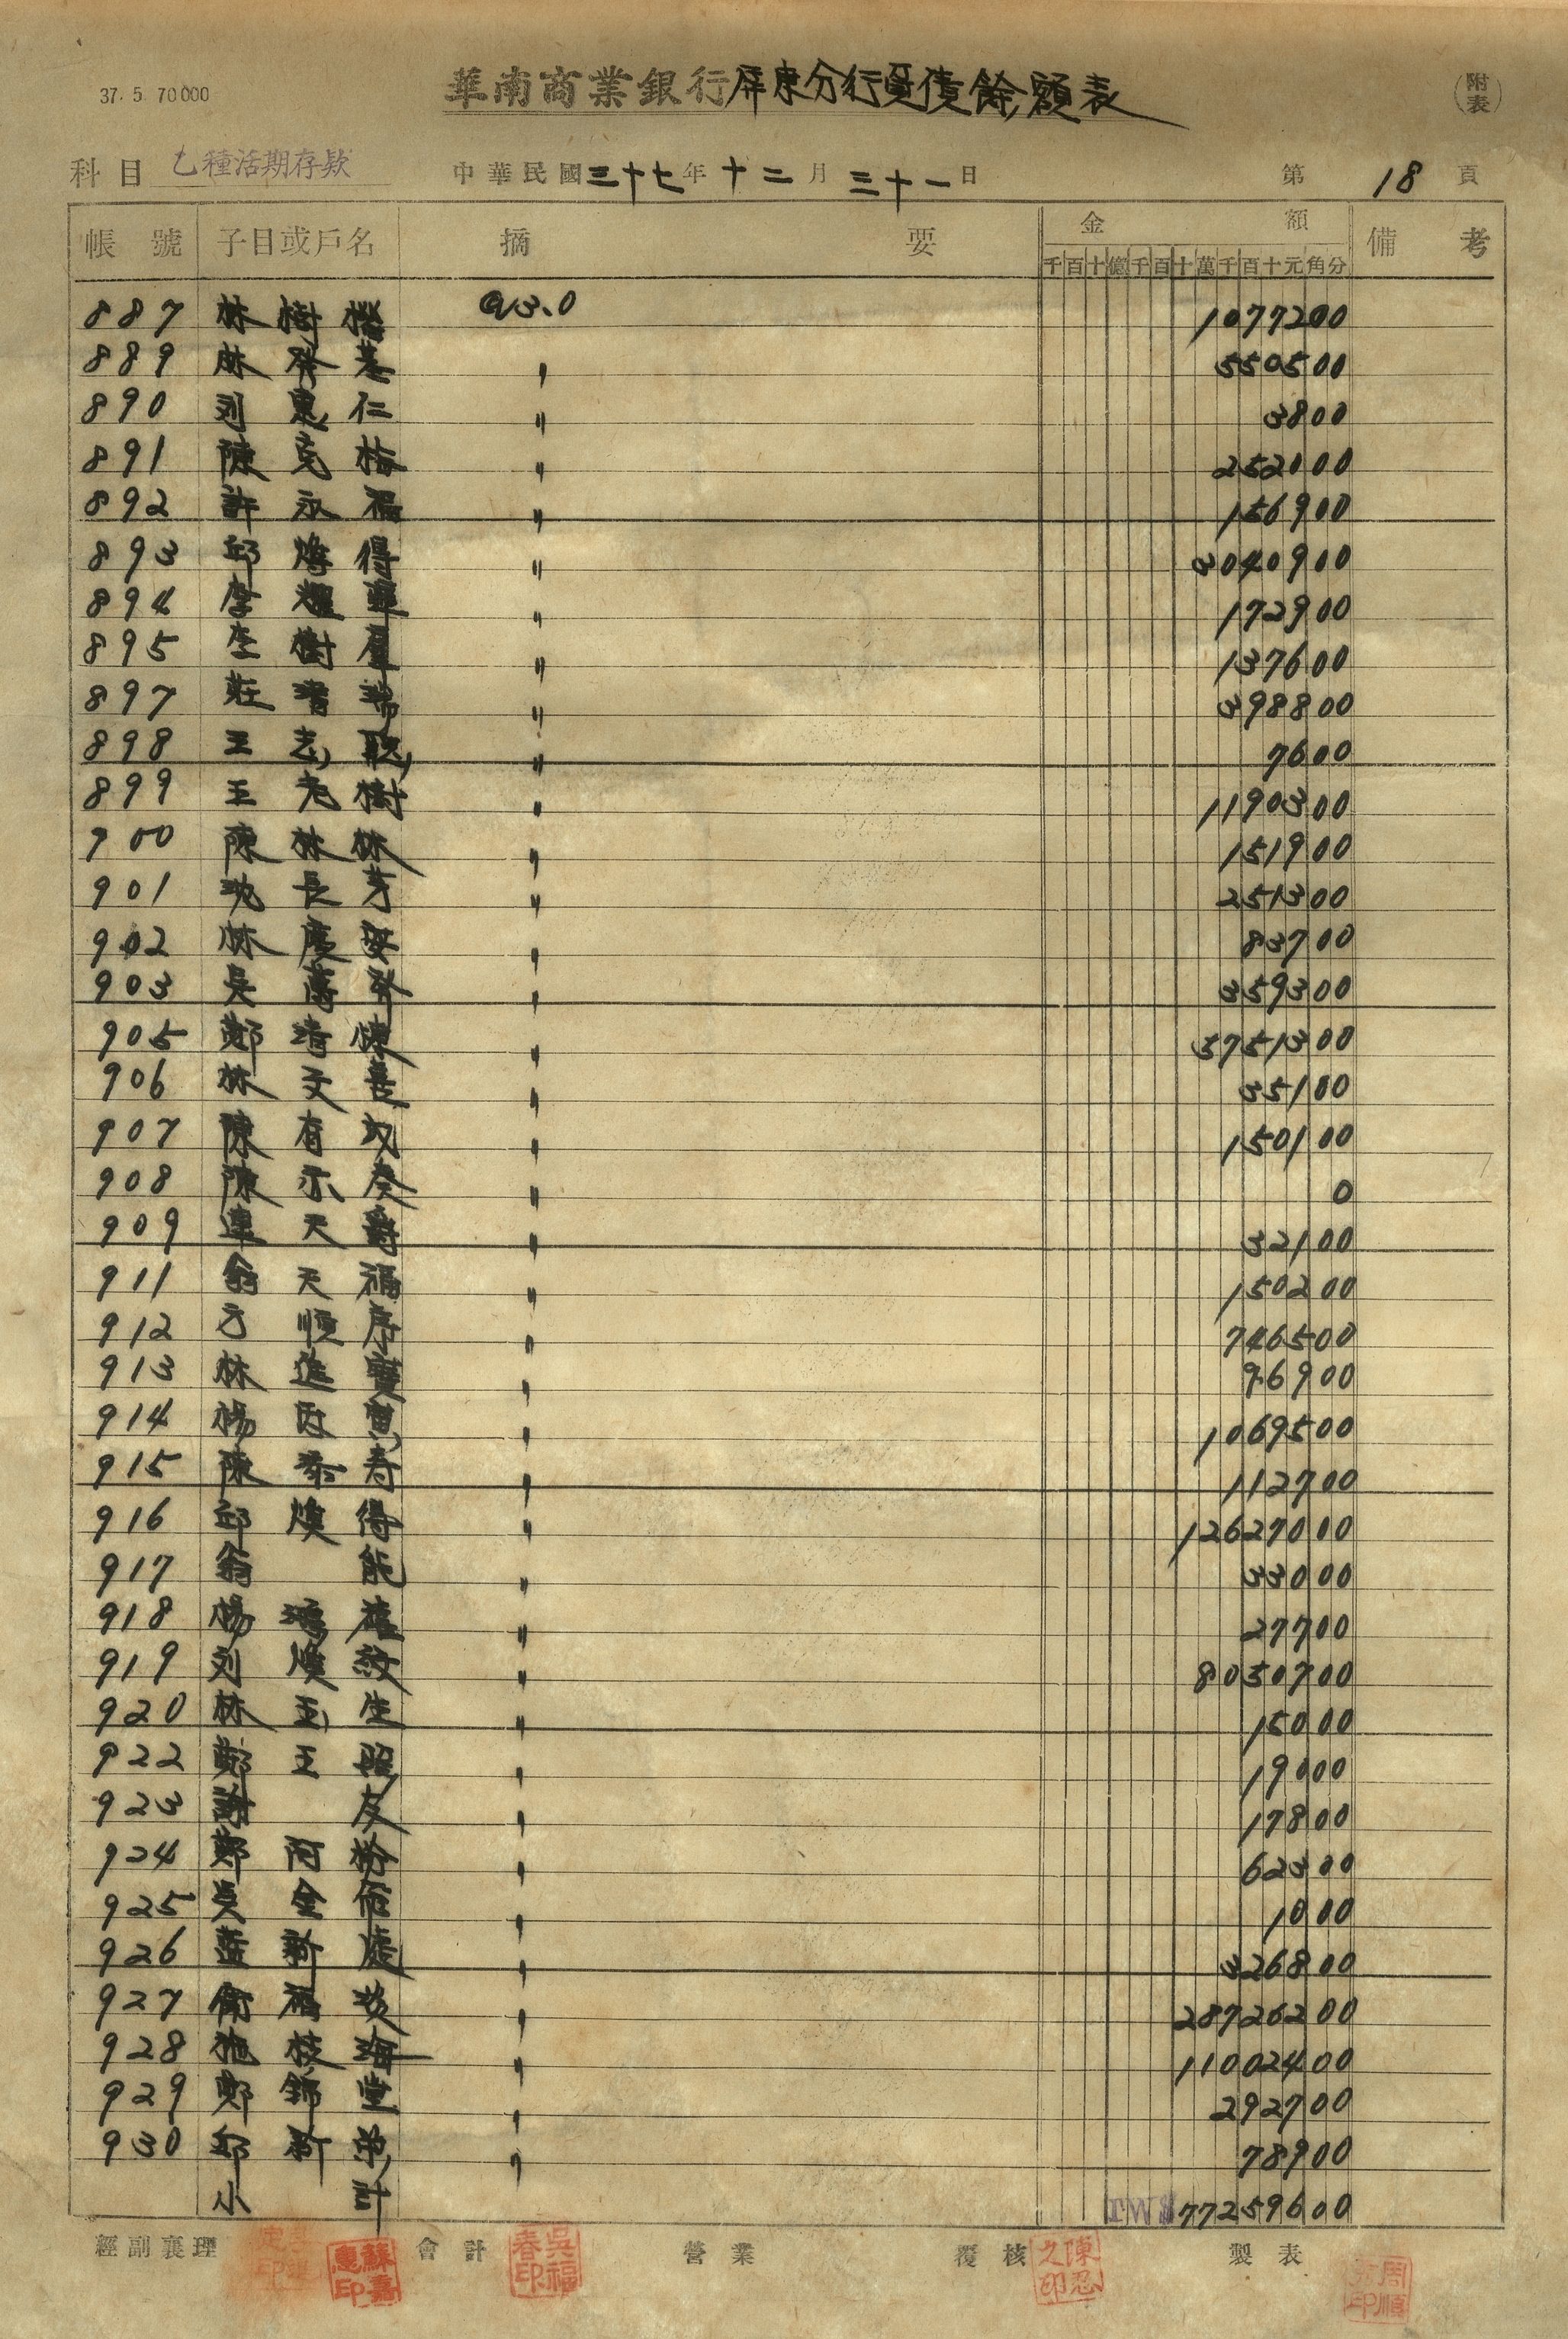 37. 5. 70000
華南商業銀行屏東分行負債餘額表
(附表)
科目 乙種活期存款 中華民國三十七年十二月三十一日 第18頁
帳號 子目或戶名 摘要 金額 備考
千百十億千百十萬千百十元角分
887 林樹 @3.0 1077200
889 林 〃 550500
890 刘惠仁 〃 3800
891 陳克 〃 252000
892 許永福 〃 156900
893 邱得 〃 3040900
894 李耀 〃 172900
895 李樹 〃 137600
897 莊清 〃 398800
898 王志聰 〃 7600
899 王老樹 〃 1190300
900 陳林林 〃 151900
901 沈長芽 〃 251300
902 林慶安 〃 83700
903 吳萬 〃 359300
905 鄭清 〃 3751300
906 林文 〃 35100
907 陳有 〃 150100
908 陳 〃 0
909 連天爵 〃 32100
911 翁天福 〃 150200
912 方順序 〃 746500
913 林進寶 〃 96900
914 楊 〃 1069500
915 陳添寿 〃 112700
916 邱煥得 〃 12627000
917 翁能 〃 33000
918 楊鴻雄 〃 27700
919 刘煥紋 〃 8050700
920 林玉生 〃 15000
922 鄭王照 〃 19000
923 謝友 〃 17800
924 鄭阿 〃 62300
925 吳金 〃 1000
926 藍新慶 〃 326800
927 福 〃 28726200
928 施枝海 〃 11002400
929 鄭錦堂 〃 292700
930 邱新 〃 78900
小計 TW$ 77259600
經副襄理 會計 營業 覆核 製表
蘇嘉惠印 吳福春印 陳忍之印 周順印